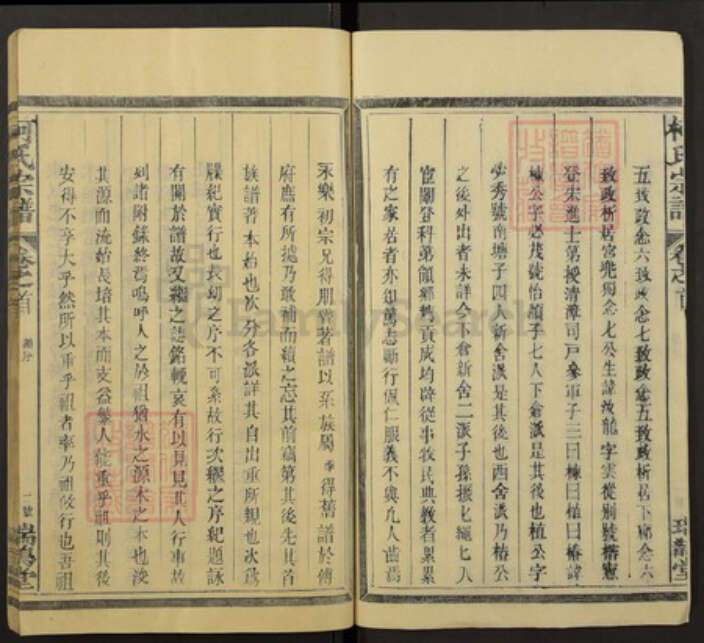 柯氏宗譜
卷之首
瑞鵲堂
五致政念六致政念七致政念五致政析居下廓念六
致政析居宮兜獨念七公生諱汝龍字雲從別號楷憲
登宋進士第授清漳司戶參軍子三曰棟曰植曰椿諱
棟公字必茂號怡顏子七人下倉派是其後也植公字
必秀號南塘子四人新舍派是其後也西舍派乃椿公
之後外出者未詳今下倉新舍二派子孫振七繩七入
宦關登科第領鄉貢成均辟從事牧民典教者累累
有之家居者亦知篤志勵行佩仁服義不與凡人齒焉
永樂初宗兄得朋嘗著譜以系族屬季得舊譜於傅
府應有所據乃敢補而續之忘其前竊第其後先其首
族譜著本始也次分各派詳其自出重所親也次為
牒紀實行也長幼之序不可紊故行次繆之序紀題詠
有關於譜故又繼之誌銘輓哀有以見其人行事故
列諸附錄終焉嗚呼人之於祖猶水之源木之本也浚
其源而流始長培其本而支益繁人能重乎祖則其後
安得不享大乎然所以重乎祖者率乃祖攸行也吾祖
柯氏宗譜
卷之首
二號
瑞鵲堂
FamilySearch